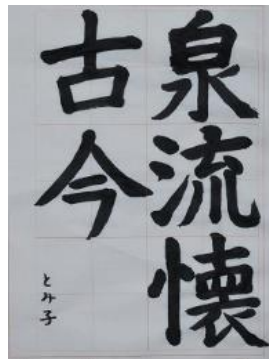 泉流懐
古今
とみ子